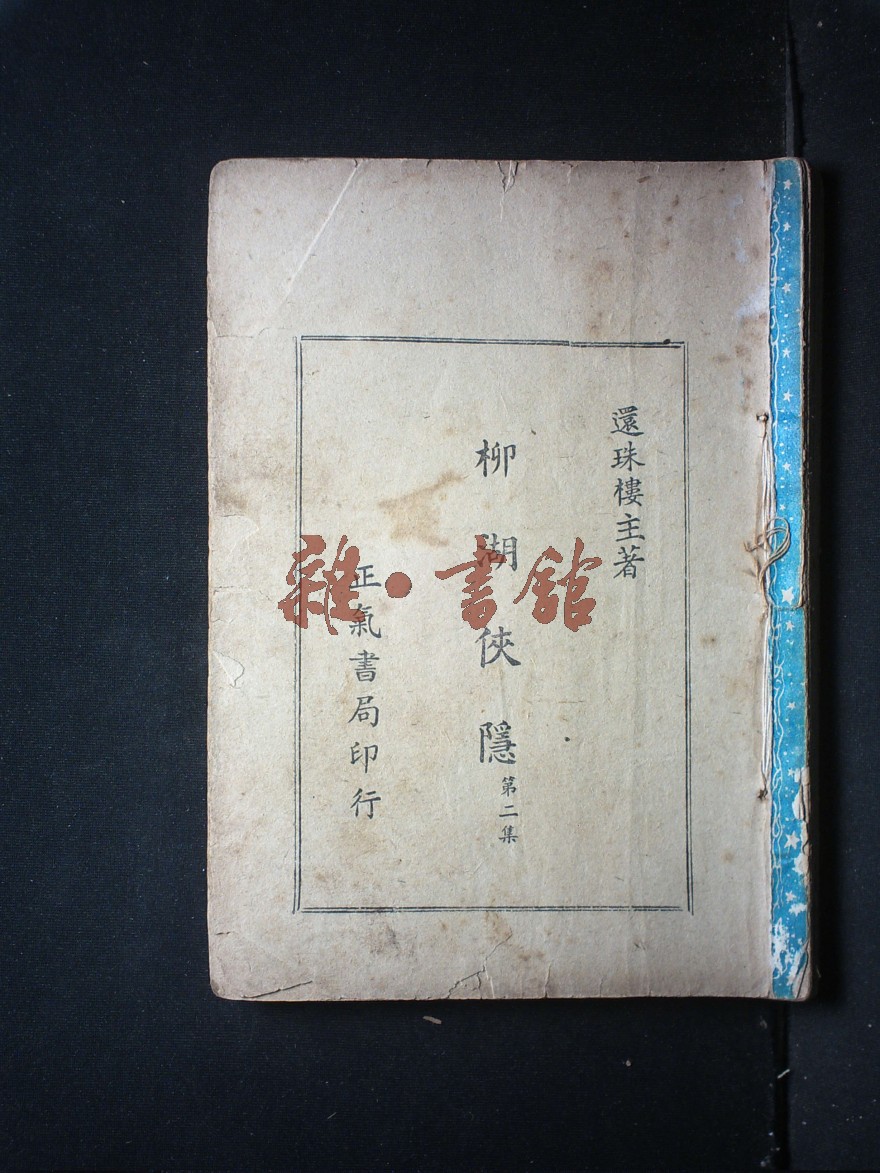 還珠樓主著
柳湖俠隱
第二集
正氣書局印行
雜·書館